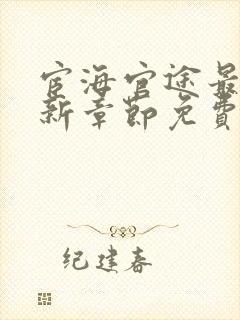 宦海官途最
新章节免费
纪建春